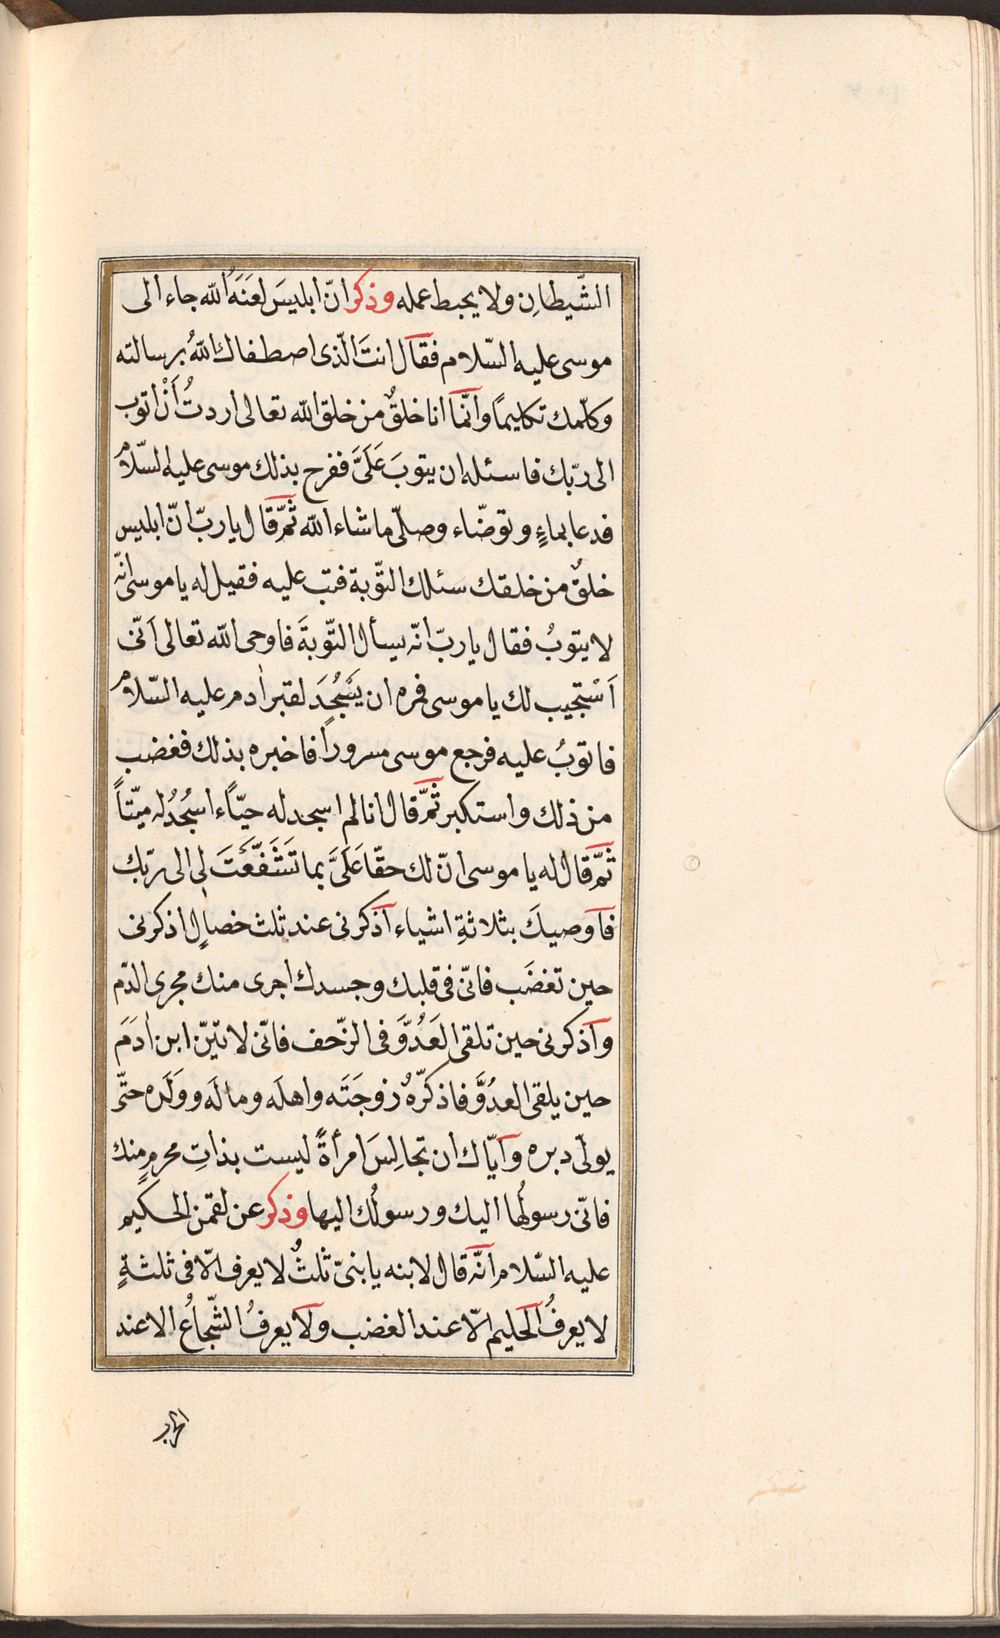 الشّيطانِ ولا يحبط عمله وذكر انّ ابليسَ لعَنَهُ الله جاء الى
موسى عليه السّلام فقال انتَ الّذى اصطفاك اللهُ برسالته
وكلّمك تكليمًا وانّما انا خلقٌ من خلق الله تعالى اردتُ أنْ اتوب
الى ربّك فاسئله ان يتوبَ عَلَىَّ ففرح بذلك موسى عليه السّلام
فدعا بماءٍ وتوضّاء وصلّى ماشاء الله ثمّ قال يا ربّ انّ ابليس
خلقٌ من خلقك سئلك التّوبة فتب عليه فقيل له يا موسى انّه
لا يتوبُ فقال يا ربّ انّه يسأل التّوبةَ فاوحى الله تعالى اَنّى
اَسْتجيب لك يا موسى فمره ان يَسْجُدَ لقبر اٰدم عليه السّلام
فاتوبُ عليه فرجع موسى مسروراً فاخبره بذلك فغضب
من ذلك واستكبر ثمّ قال انا لم اسجد له حيّاً ءاسْجُدُ له ميّتاً
ثمّ قال له يا موسى انّ لك حقّا عَلَىَّ بما تَشَفَّعَتَ لى الى ربّك
فاوصيكَ بثلاثةِ اشياء اذكرنى عند ثلث خصاٰلٍ اذكرنى
حين تغضَب فانّى فى قلبك وجسدك اجرى منك مجرى الدّم
واذكرنى حين تلقى العَدُوَّ فى الزّحف فانّى لا تيّن ابن اٰدَمَ
حين يلقى العدُوَّ فاذكّرهُ زوجَتَه واهلَه وماله وولَده حتّى
يولّى دبره وايّاك ان تجالِسَ امرأةً ليست بذاتِ محرمٍ منك
فانّى رسولُها اليك ورسولُك اليها وذكر عن لقمن الحكيم
عليه السّلام انّه قال لابنه يا بنىّ ثلثٌ لا يعرف الّا فى ثلثةٍ
لا يعرفُ الحليم الّا عند الغضب ولا يعرفُ الشّجاعُ الا عند